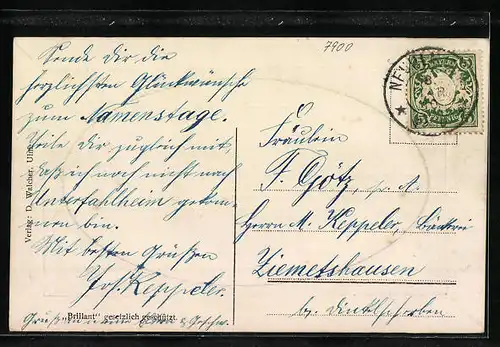 7900
Sende dir die
herzlichsten Glückwünsche
zum Namenstage.
Teile Dir zugleich mit,
daß ich noch nicht nach
Unterfahlheim gekom-
men bin.
Mit besten Grüßen
Jos. Keppeler.
Verlag: D. Walcher, Ulm
„Brillant“ gesetzlich geschützt.
NEU
BAYERN
5
PFENNIG
Fräulein
F. Götz, p. A.
Herrn M. Keppeler,
Ziemetshausen
b.